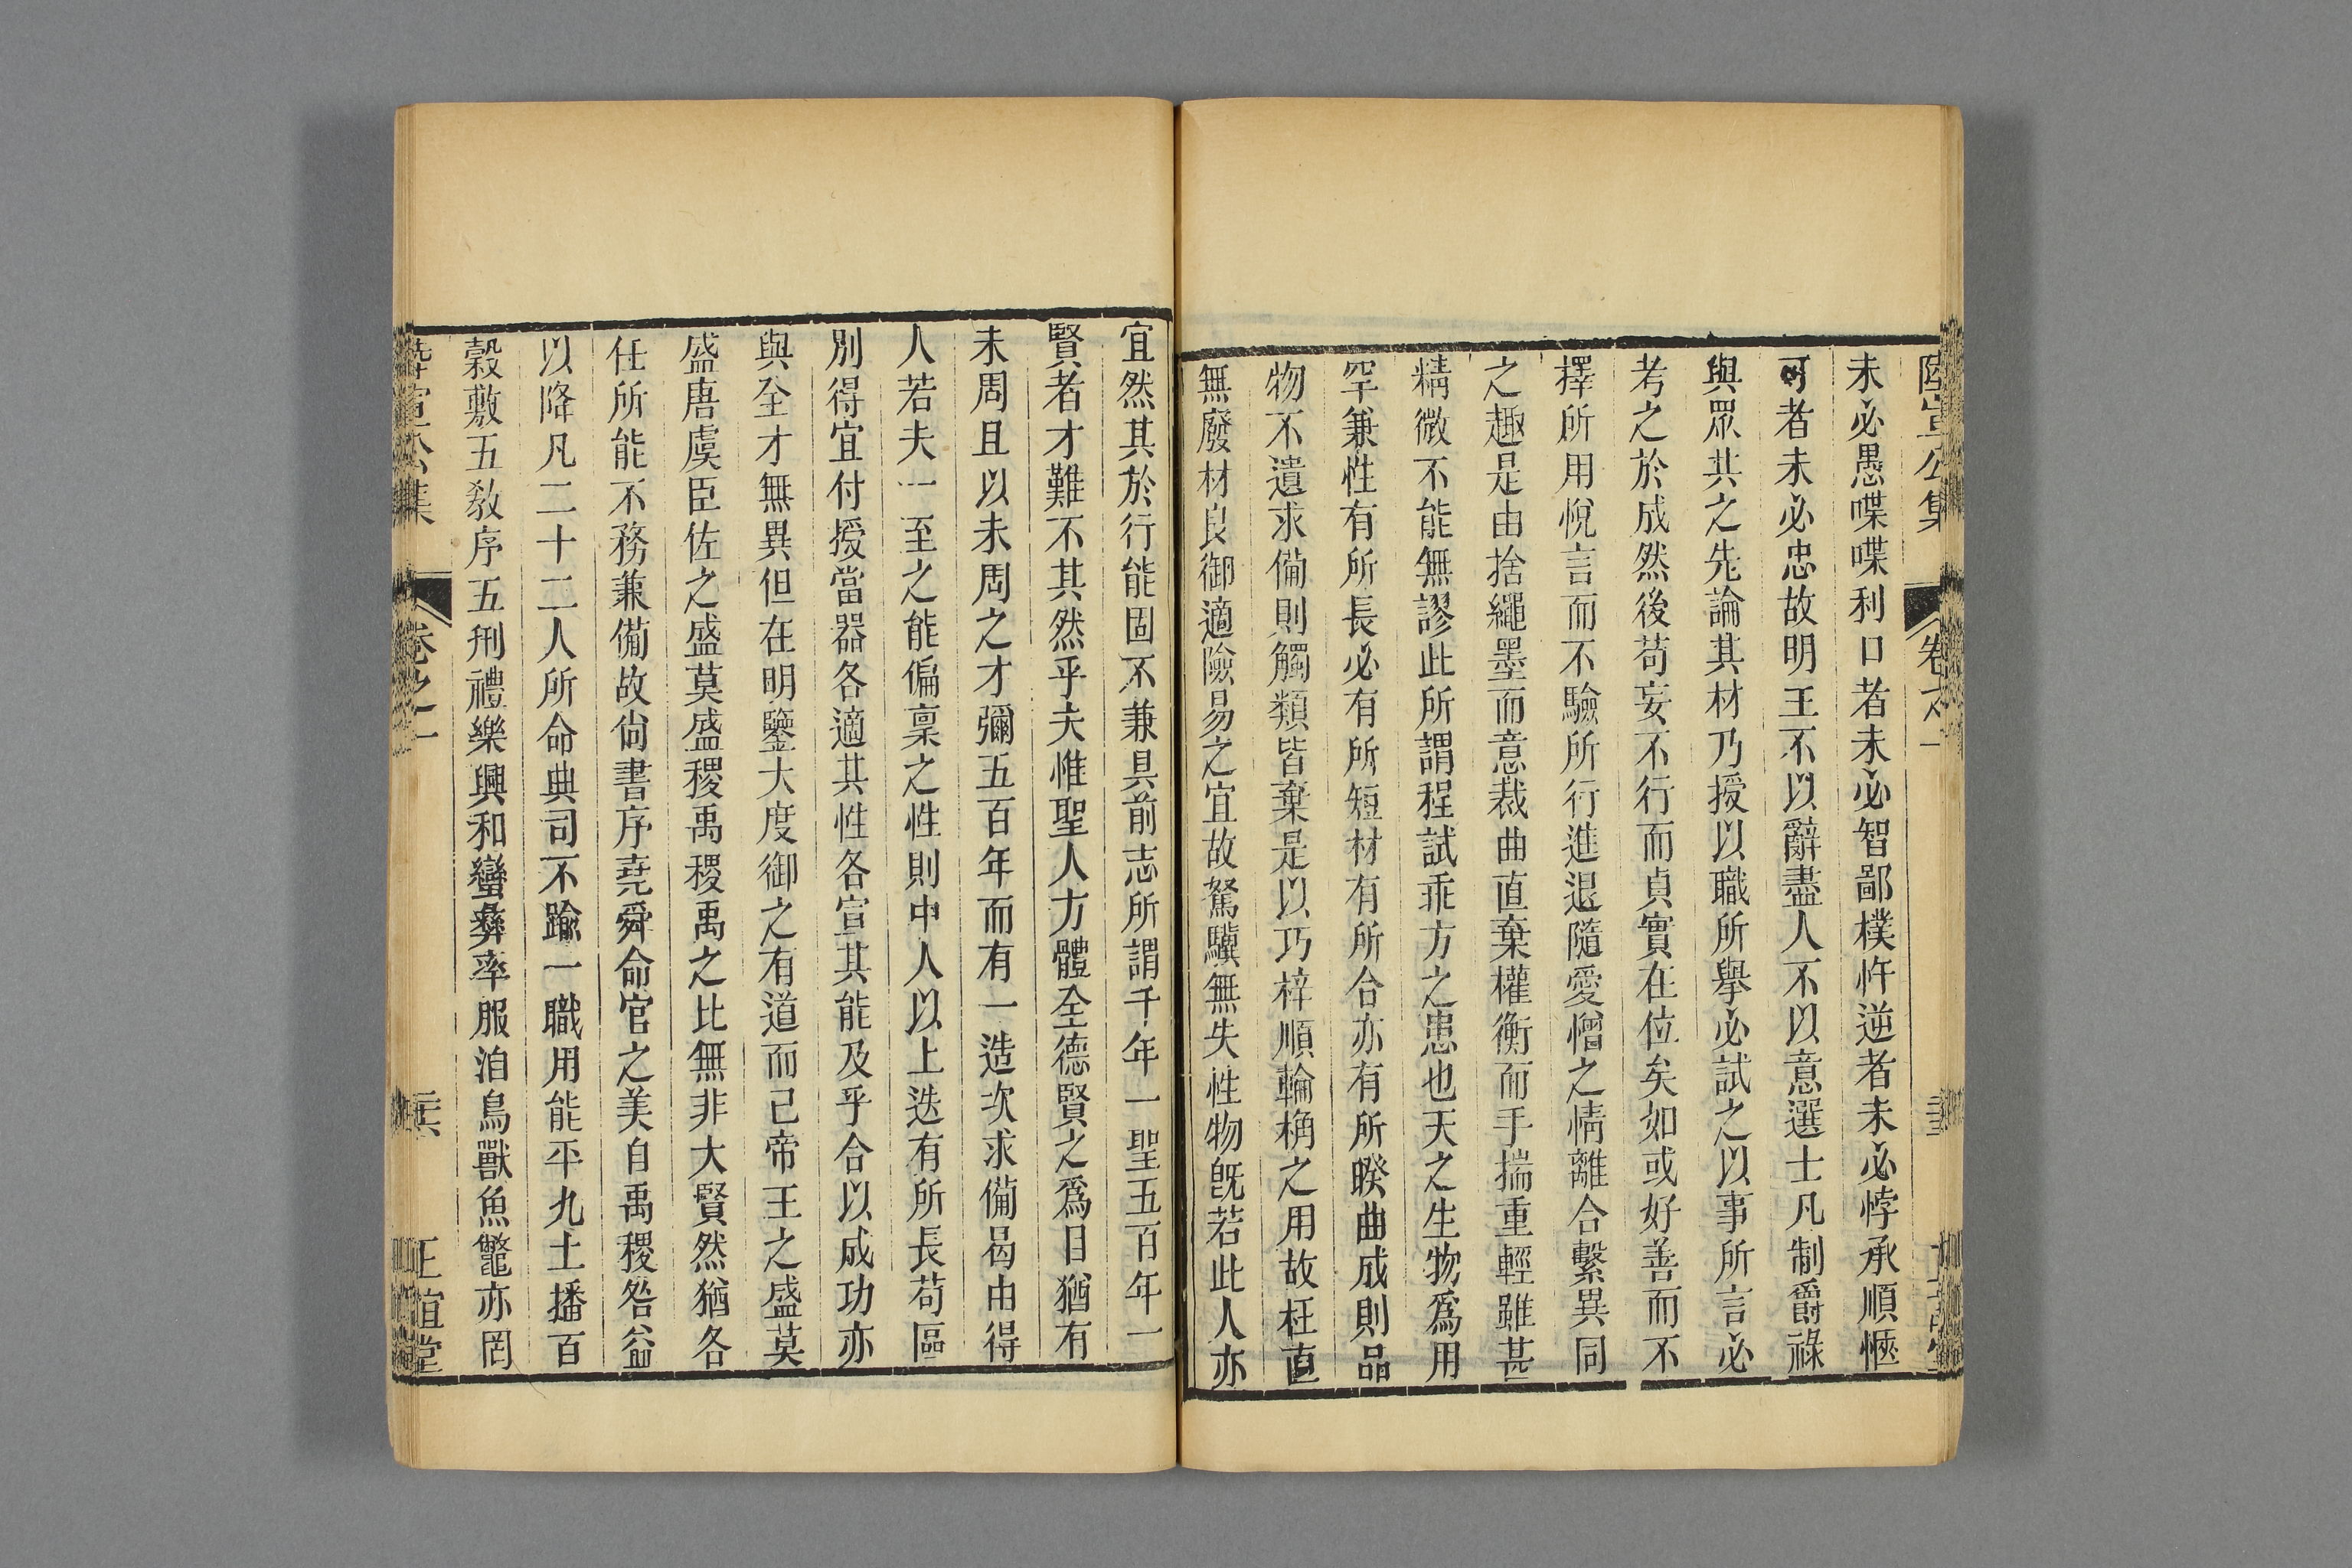 陸宣公集 卷
未必愚喋喋利口者未必智鄙樸忤逆者未必悖承順愜
可者未必忠故明王不以辭盡人不以意選士凡制爵祿
與眾共之先論其材乃授以職所舉必試之以事所言必
考之於成然後苟妄不行而貞實在位矣如或好善而不
擇所用悅言而不驗所行進退隨愛憎之情離合繫異同
之趣是由捨繩墨而意裁曲直棄權衡而手揣重輕雖甚
精微不能無謬此所謂程試乖方之患也天之生物爲用
罕兼性有所長必有所短材有所合亦有所暌曲成則品
物不遺求備則觸類皆棄是以巧梓順輪桷之用故枉直
無廢材良御適險易之宜故駑驥無失性物旣若此人亦
宜然其於行能固不兼具前志所謂千年一聖五百年一
賢者才難不其然乎夫惟聖人方體全德賢之爲目猶有
未周且以未周之才彌五百年而有一造次求備曷由得
人若夫一至之能偏稟之性則中人以上迭有所長苟區
別得宜付授當器各適其性各宣其能及乎合以成功亦
與全才無異但在明鑒大度御之有道而已帝王之盛莫
盛唐虞臣佐之盛莫盛稷禹稷禹之比無非大賢然猶各
任所能不務兼備故尙書序堯舜命官之美自禹稷咎益
以降凡二十二人所命典司不踰一職用能平九土播百
穀敷五敎序五刑禮樂興和蠻彝率服洎鳥獸魚鼈亦罔
宣公集 卷之一 正誼堂